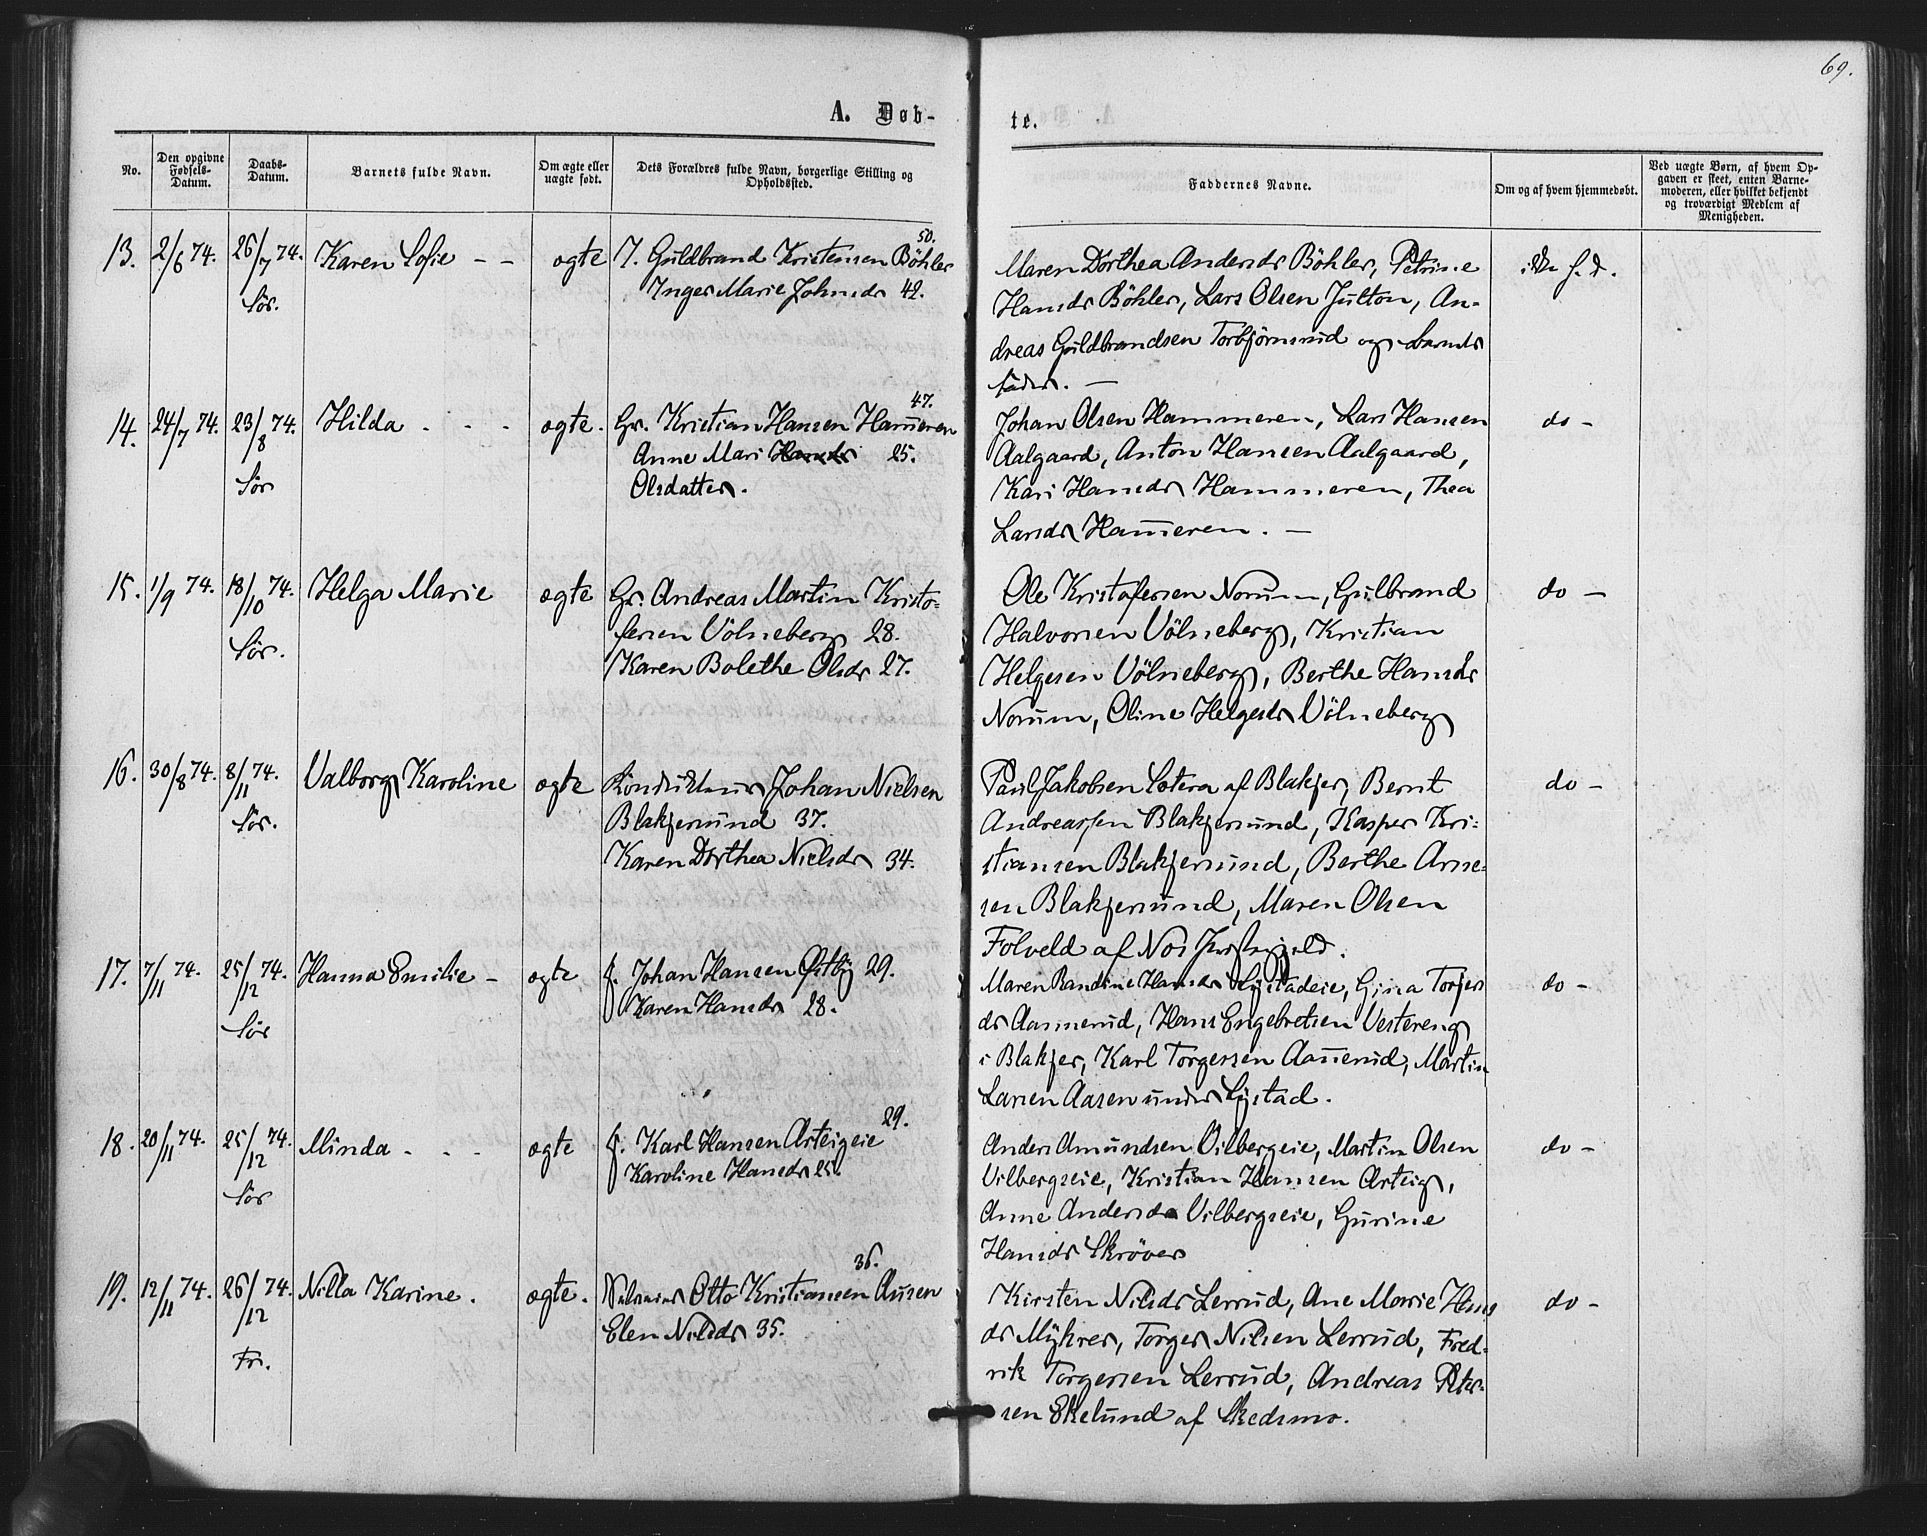 69.
A. Døb-
te.
No.
Den opgivne Fødsels-Datum.
Daabs-Datum.
Barnets fulde Navn.
Om ægte eller uægte født.
Dets Forældres fulde Navn, borgerlige Stilling og Opholdssted.
Faddernes Navne.
Om og af hvem hjemmedøbt.
Ved uægte Børn, af hvem Opgaven er skeet, enten Barnemoderen, eller hvilket bekjendt og troværdigt Medlem af Menigheden.
13. 2/6 74. 26/7 74. Karen Sofie - - ægte I. Guldbrand Kristensen Böhler 50.
Sör. Inger Marie Johnsdr 42.
Maren Dorthea Andersdr Böhler, Petrine
Hansdr Böhler, Lars Olsen Jutton, An-
dreas Guldbrandsen Torbjörnsrud og barnets
fader. —
ikke h. d.
14. 24/7 74. 23/8 74. Hilda - - - ægte. Gr. Kristian Hansen Hammeren 47.
Sör Anne Mari Hansdr 25.
Olsdatter.
Johan Olsen Hammeren, Lars Hansen
Aalgaard, Anton Hansen Aalgaard,
Kari Hansdr Hammeren, Thea
Larsdr Hammeren. —
do -
15. 1/9 74. 18/10 74. Helga Marie ægte Gr. Andreas Martin Kristo-
fersen Völneberg 28.
Sör. Karen Bolethe Olsdr 27.
Ole Kristofersen Norum, Gulbrand
Halvorsen Völneberg, Kristian
Helgesen Völneberg, Berthe Hansdr
Norum, Oline Helgesdr Völneberg
do —
16. 30/8 74. 8/11 74. Valborg Karoline ægte Kondukteur Johan Nielsen
Sör. Blakjersund 37.
Karen Dorthea Nielsdr 34.
Paul Jakobsen Sætera af Blakjer, Bernt
Andreassen Blakjersund, Kasper Kri-
stiansen Blakjersund, Berthe Arne-
sen Blakjersund, Maren Olsen
Folveld af Nes
do -
17. 7/11 74. 25/12 74. Hanna Emilie - ægte f. Johan Hansen Østby 29.
Sör Karen Hansdr 28.
Maren Randine Hansdr Lystadeie, Gina Torgers
dr Aamerud, Hans Engebretsen Vestereng
i Blakjer, Karl Torgersen Aamerud, Martin
Larsen Aasen under Lystad.
do -
18. 20/11 74. 25/12 74. Minda - - - ægte f. Karl Hansen Arteigeie 29.
Sör Karoline Hansdr 25.
Anders Amundsen Vilbergeie, Martin Olsen
Vilbergseie, Kristian Hansen Arteig,
Anne Andersdr Vilbergseie, Gurine
Hansdr Skröver
do -
19. 12/11 74. 26/12 74. Nilla Karine. ægte. Otto Kristiansen Ausen 36.
Fr. Elen Nilsdr 35.
Kirsten Nilsdr Lerrud, Ane Marie Hans
dr Myhrer, Torger Nilsen Lerrud, Fred-
rik Torgersen Lerrud, Andreas Peter-
sen Ekelund af Skedsmo.
do -